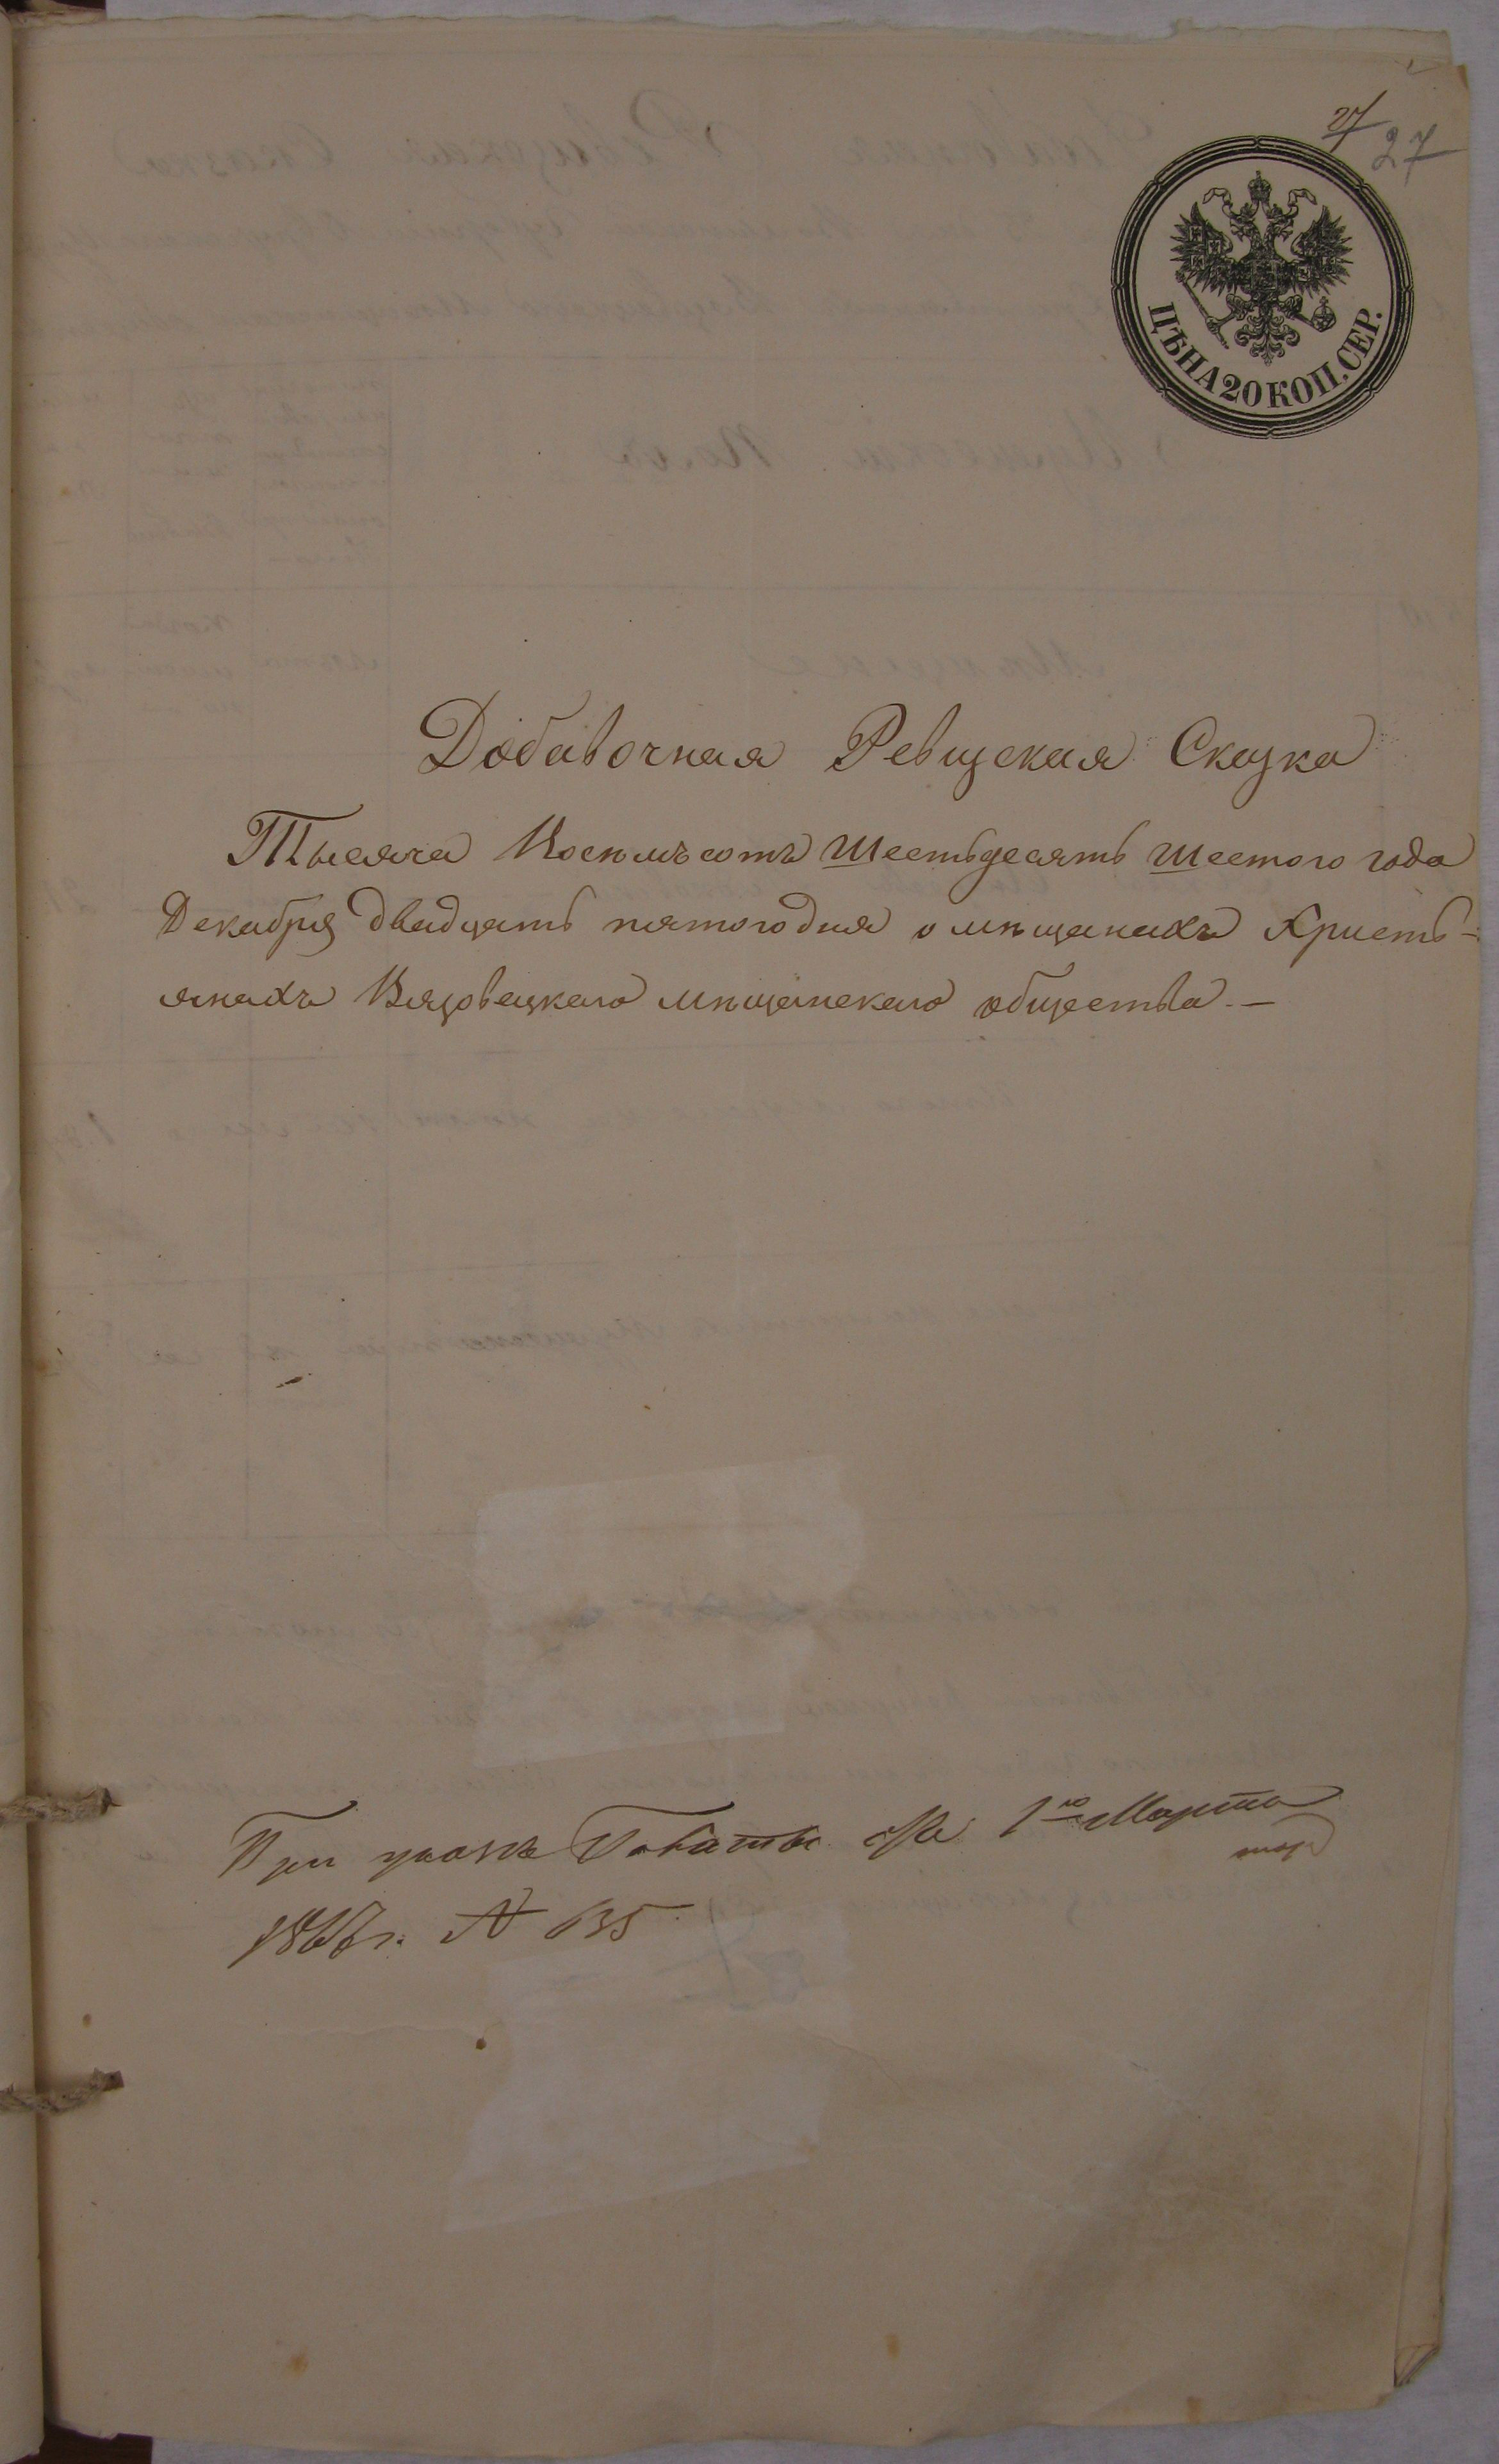 27
27
ЦѢНА 20 КОП. СЕР.
Добавочная Ревизская Сказка
Тысяча Восемьсотъ Шестьдесять Шестого года
Декабря двадцать пятого дня о мѣщанахъ Христь-
янахъ Вязовецкаго мѣщанскаго общества. —
При указѣ Палаты 1го Марта
1867 г. № 635